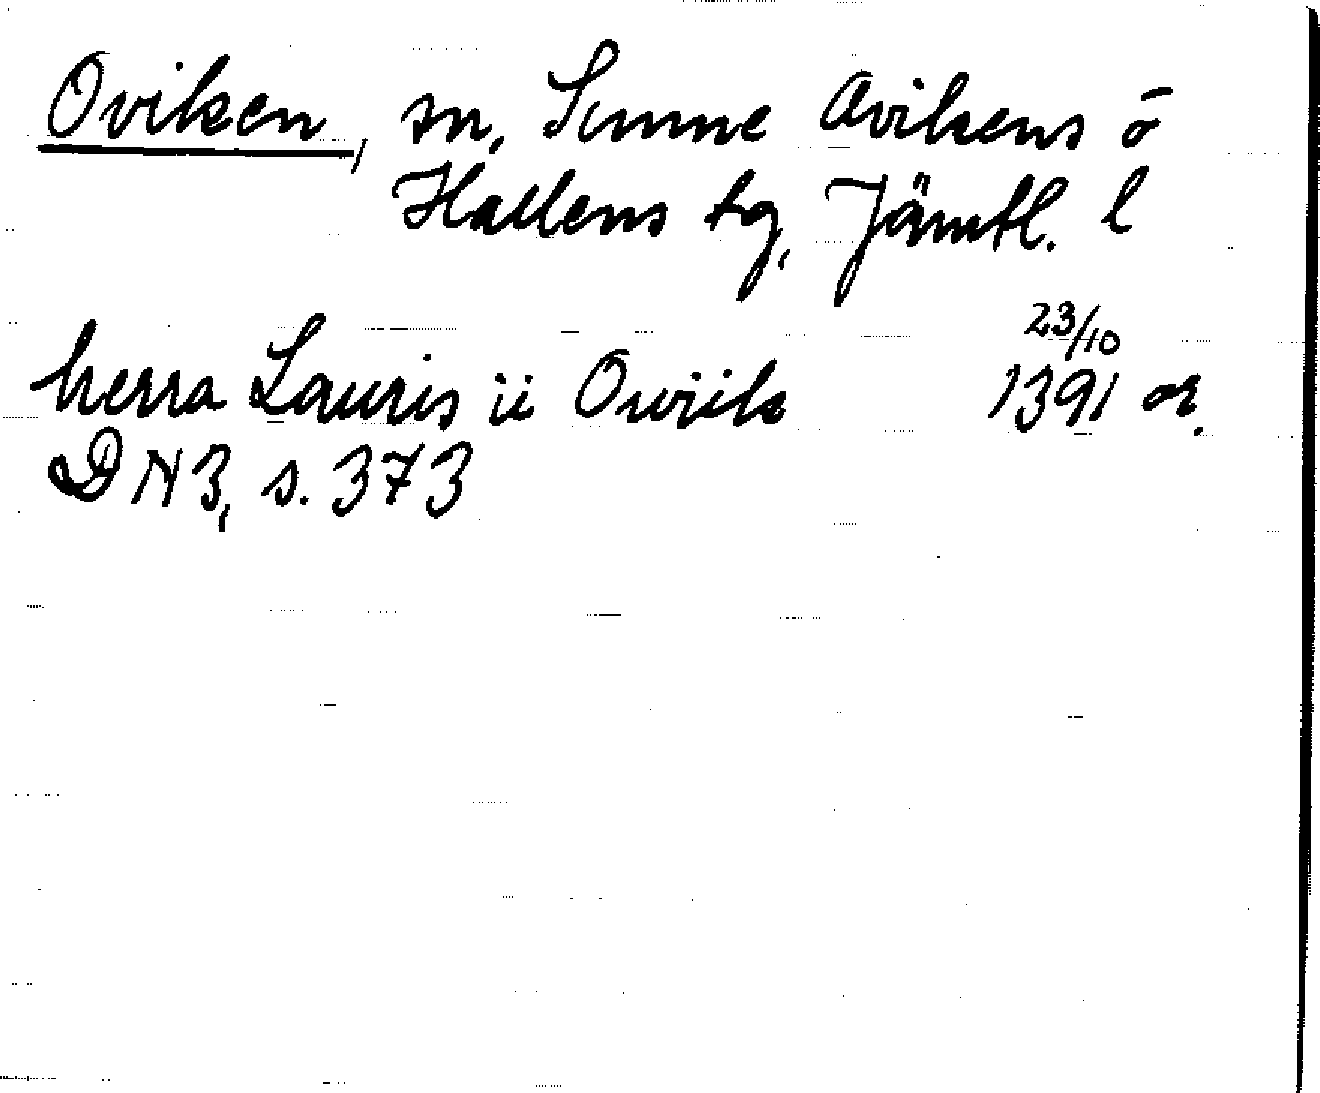 Oviken, sn, Sunne Ovikens o
Hallens tg, Jämtl. l
23/10
herra Lauris ii Owiik 1391 or.
DN 3, s. 373